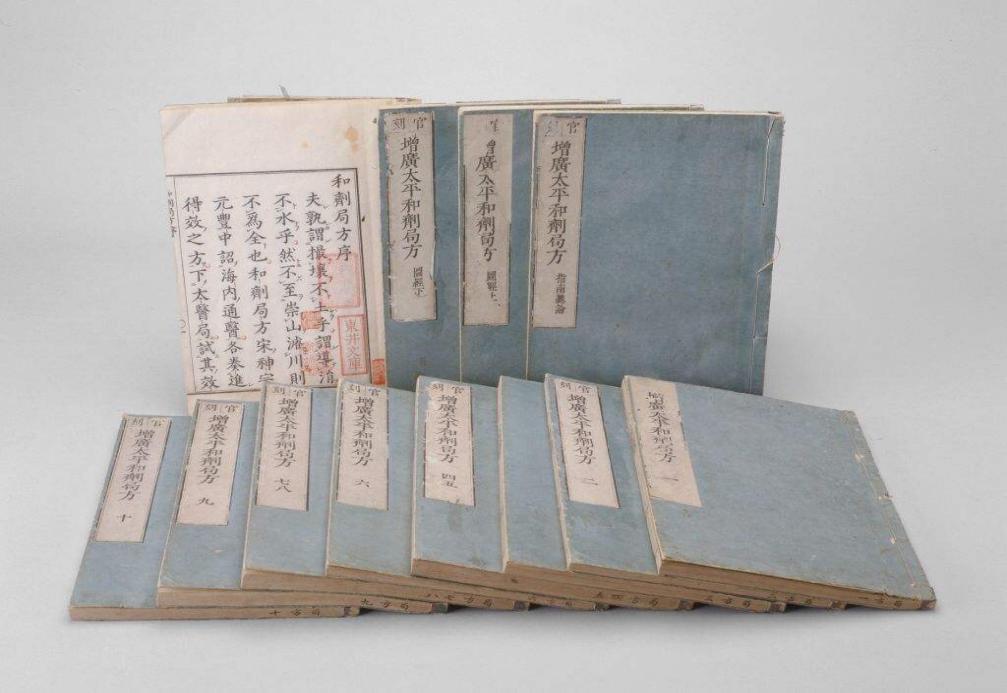 和劑局方序
夫孰謂撮壤不土乎謂導涓
不水乎然不至崇山濬川則
不爲全也和劑局方宋神宗
元豐中詔海内通醫各奏進
得效之方下太醫局試其效
東井文庫
官刻
增廣太平和劑局方 指南總論
增廣太平和劑局方 圖經上
官刻
增廣太平和劑局方 圖經下
增廣太平和劑局方 一
官刻
增廣太平和劑局方 二
官刻
增廣太平和劑局方 四五
官刻
增廣太平和劑局方 六
官刻
增廣太平和劑局方 七八
官刻
增廣太平和劑局方 九
官刻
增廣太平和劑局方 十
局方四五
局方七八
局方九
局方十